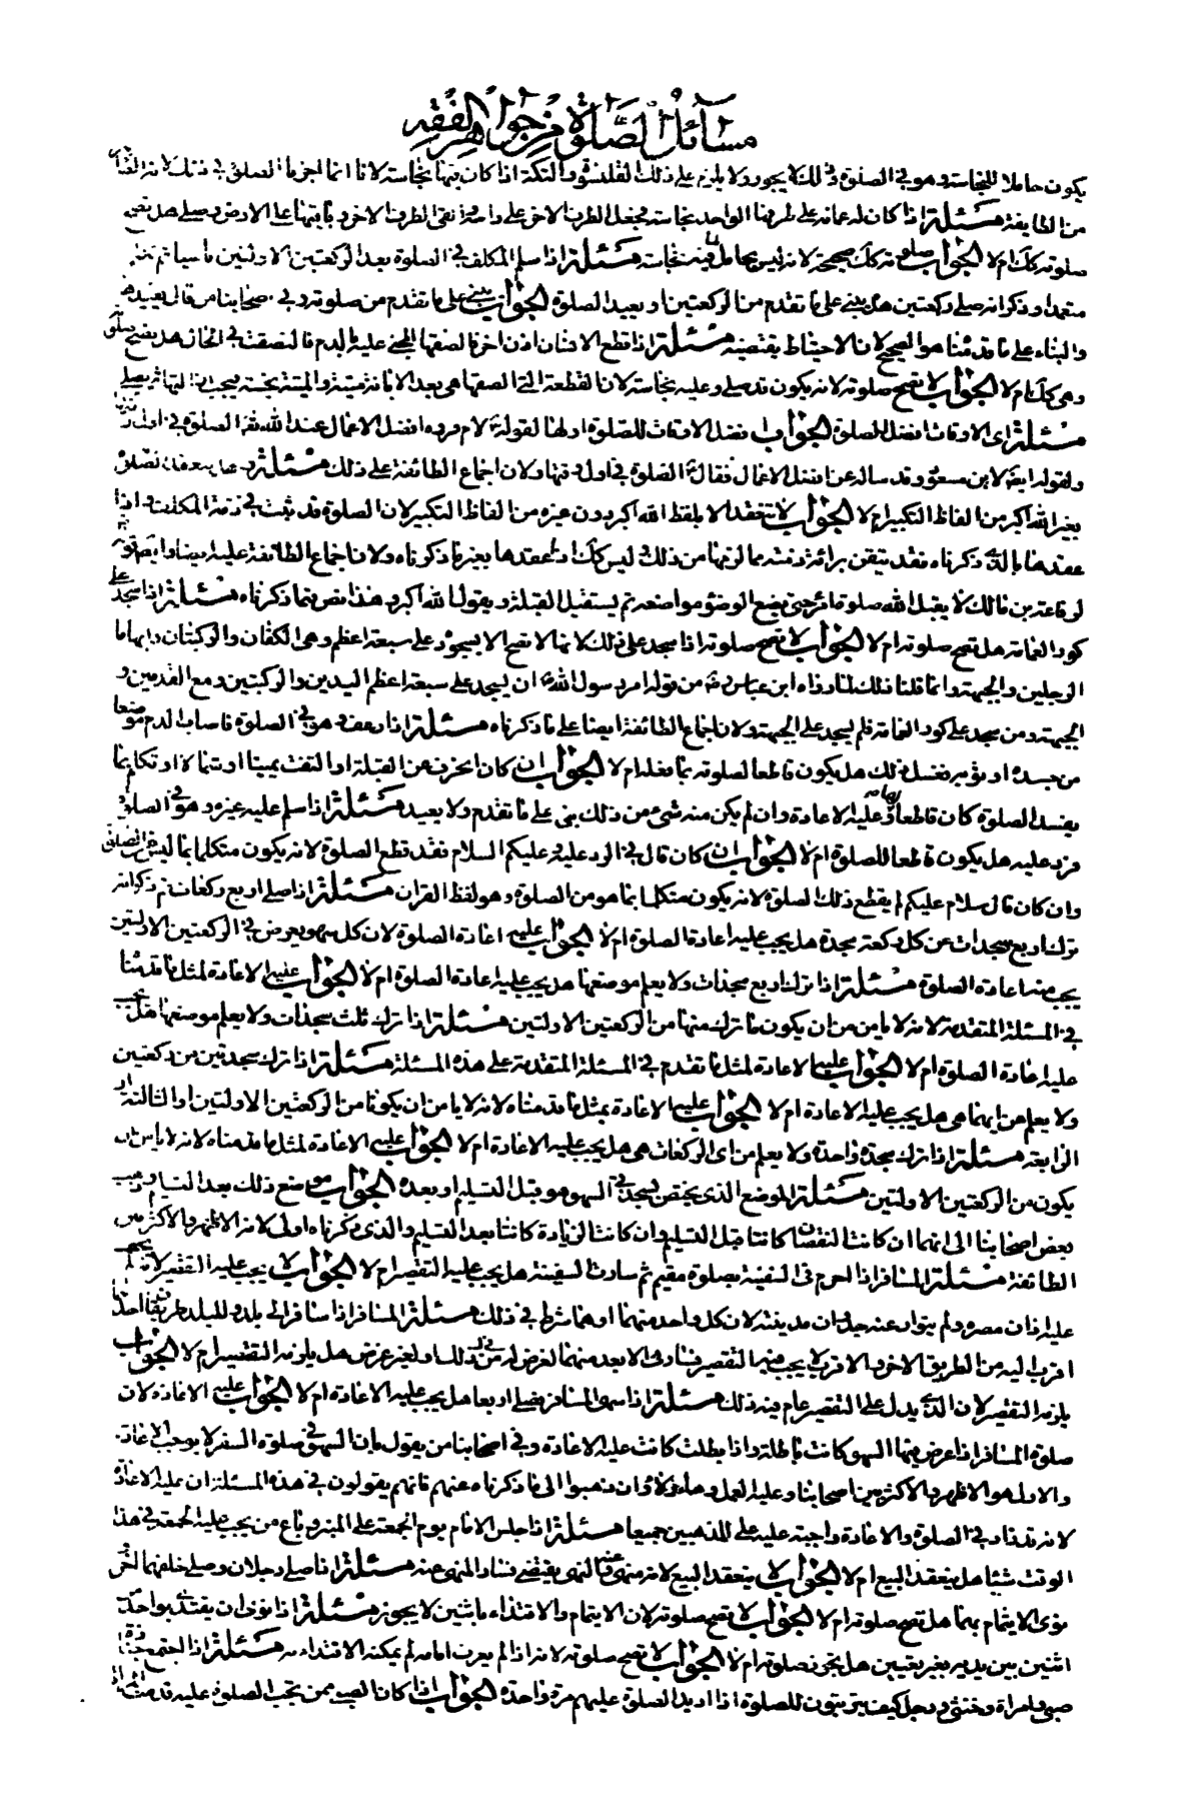 مسائل الصلوة من جواهر الفقه
يكون حاملا للنجاسة وهو في الصلوة وذلك لا يجوز ولا يلزم على ذلك القلنسوة والتكة اذا كان بهما نجاسة لانا انما اجزنا الصلوة في ذلك لانه
من الطايفة مسئلة اذا كان له عمامة على طرفها الواحد نجاسة فجعل الطرف الاخر على راسه وبقى الطرف الاخر وبا بهما على الارض وصلى هل تصح
صلوته كك ام لا الجواب صلوته كك صحيحة لانه ليس بحامل لما فيه نجاسة مسئلة اذا سلم المكلف في الصلوة بعد الركعتين الاولتين ناسيا ثم
متعمدا وذكر انه صلى ركعتين هل يبنى على ما تقدم من الركعتين او يعيد الصلوة الجواب يبنى على ما تقدم من صلوته وفي اصحابنا من قال يعيد
والبناء على ما قدمناه هو الصحيح لان الاحتياط يقتضيه مسئلة اذا قطع الانسان اذن اخر فالصقها المجنى عليه بالدم فالتصقت في الحال هل تصح صلوته
وهي كك ام لا الجواب لا تصح صلوته لانه يكون قد صلى وعليه نجاسة لان القطعة التي الصقها هي بعد الابانة ميتة والميتة نجسة فيجب ازالتها ثم يصلى
مسئلة اى الاوقات افضل للصلوة الجواب افضل الاوقات للصلوة اولها لقوله لام فروة افضل الاعمال عند الله تع الصلوة في اول وقتها
ولقوله ايضا لابن مسعود وقد ساله عن افضل الاعمال فقال الصلوة في اول وقتها ولان اجماع الطائفة على ذلك مسئلة هل تنعقد الصلوة
بغير الله اكبر من الفاظ التكبير ام لا الجواب لا تنعقد الا بلفظ الله اكبر دون غيره من الفاظ التكبير لان الصلوة قد ثبتت في ذمة المكلف واذا
عقدها بالذي ذكرناه فقد تيقن برائة ذمته مما لزمها من ذلك وليس كك اذا عقدها بغير ما ذكرناه ولان اجماع الطائفة عليه ايضا وايضا قوله
لرفاعة بن مالك لا يقبل الله صلوة امرء حتى يضع الوضوء مواضعه ثم يستقبل القبلة ويقول الله اكبر وهذا نص فيما ذكرناه مسئلة اذا سجد على
كور العمامة هل تصح صلوته ام لا الجواب لا تصح صلوته اذا سجد على ذلك لانها لا تصح الا بسجود على سبعة اعظم وهي الكفان والركبتان وابهاما
الرجلين والجبهة وانما قلنا ذلك لما رواه ابن عباس من قوله امر رسول الله ان يسجد على سبعة اعظم اليدين والركبتين ومع القدمين و
الجبهة ومن سجد على كور العمامة فلم يسجد على الجبهة ولان اجماع الطائفة ايضا على ما ذكرناه مسئلة اذا رعف وهو في الصلوة فاصاب الدم موضعا
من جسده او ثوبه فغسل ذلك هل يكون قاطعا لصلوته بما فعله ام لا الجواب ان كان انحرف عن القبلة او التفت يمينا او شمالا او تكلم بما
يفسد الصلوة كان قاطعا لها وعليه الاعادة وان لم يكن منه شئ من ذلك بنى على ما تقدم ولا يعيد مسئلة اذا سلم عليه غيره وهو في الصلوة
فرد عليه هل يكون قاطعا للصلوة ام لا الجواب ان كان قال في الرد عليه وعليكم السلام فقد قطع الصلوة لانه يكون متكلما بما ليس من الصلوة
وان كان قال سلام عليكم لم يقطع ذلك الصلوة لانه يكون متكلما بما هو من الصلوة وهو لفظ القران مسئلة اذا صلى اربع ركعات ثم ذكر انه
ترك اربع سجدات عن كل ركعة سجدة هل يجب عليه اعادة الصلوة ام لا الجواب عليه اعادة الصلوة لان كل سهو يعرض في الركعتين الاولتين
يجب منه اعادة الصلوة مسئلة اذا ترك اربع سجدات ولا يعلم موضعها هل يجب عليه اعادة الصلوة ام لا الجواب عليه الاعادة لمثل ما قدمنا
في المسئلة المتقدمة لانه لا يامن من ان يكون ما ترك منها من الركعتين الاولتين مسئلة اذا ترك ثلث سجدات ولا يعلم موضعها هل يجب
عليه اعادة الصلوة ام لا الجواب عليه الاعادة لمثل ما تقدم في المسئلة المتقدمة على هذه المسئلة مسئلة اذا ترك سجدتين من ركعتين
ولا يعلم من ايهما هي هل يجب عليه الاعادة ام لا الجواب عليه الاعادة بمثل ما قدمناه لانه لا يامن ان يكونا من الركعتين الاولتين او الثالثة او
الرابعة مسئلة اذا ترك سجدة واحدة ولا يعلم من اى الركعات هي هل يجب عليه الاعادة ام لا الجواب عليه الاعادة لمثل ما قدمناه لانه لا يامن ان
يكون من الركعتين الاولتين مسئلة الموضع الذي يختص بسجدتي السهو هو قبل التسليم او بعده الجواب موضع ذلك بعد التسليم وذهب
بعض اصحابنا الى انهما ان كانتا لنقصان كانتا قبل التسليم وان كانتا لزيادة كانتا بعد التسليم والذي ذكرناه اولى لانه الاظهر والاكثر بين
الطائفة مسئلة المسافر اذا احرم في السفينة بصلوة مقيم ثم سارت السفينة هل يجب عليه التقصير ام لا الجواب لا يجب عليه التقصير لانه لم يخف
عليه اذان مصره ولم يتوار عنه جدران مدينته لان كل واحد منهما او هما شرط في ذلك مسئلة المسافر اذا سافر الى بلد وللبلد طريقان احدهما
اقرب اليه من الطريق الاخر والاقرب لا يجب فيه التقصير فسار في الابعد منهما لغرض له في ذلك او لغير غرض هل يلزمه التقصير ام لا الجواب
يلزمه التقصير لان الذي يدل على التقصير عام فيه ذلك مسئلة اذا سهى المسافر فصلى اربعا هل يجب عليه الاعادة ام لا الجواب عليه الاعادة لان
صلوة المسافر اذا عرض فيها السهو كانت باطلة واذا بطلت كانت عليه الاعادة وفي اصحابنا من يقول بان السهو في صلوة السفر لا يوجب الاعادة
والاول هو الاظهر والاكثر بين اصحابنا وعليه العمل وهؤلاء وان ذهبوا الى ما ذكرناه عنهم فانهم يقولون في هذه المسئلة ان عليه الاعادة
لانه قد زاد في الصلوة والاعادة واجبة عليه على المذهبين جميعا مسئلة اذا جلس الامام يوم الجمعة على المنبر وباع من يجب عليه الجمعة في هذا
الوقت شيئا هل ينعقد البيع ام لا الجواب لا ينعقد البيع لانه منهى عنه والنهى يقتضى فساد المنهى عنه مسئلة اذا صلى رجلان وصلى خلفهما اخر
نوى الايتمام بهما هل تصح صلوته ام لا الجواب لا تصح صلوته لان الايتمام والاقتداء باثنين لا يجوز مسئلة اذا نوى ان يقتدى بواحد من
اثنين بين يديه بغير تعيين هل تجزى صلوته ام لا الجواب لا تصح صلوته لانه اذا لم يعرف امامه لم يمكنه الاقتداء به مسئلة اذا اجتمع جنازة
صبى وامراة وخنثى ورجل كيف يترتبون للصلوة اذا اريد الصلوة عليهم مرة واحدة الجواب اذا كان الصبى ممن تجب الصلوة عليه قدمت